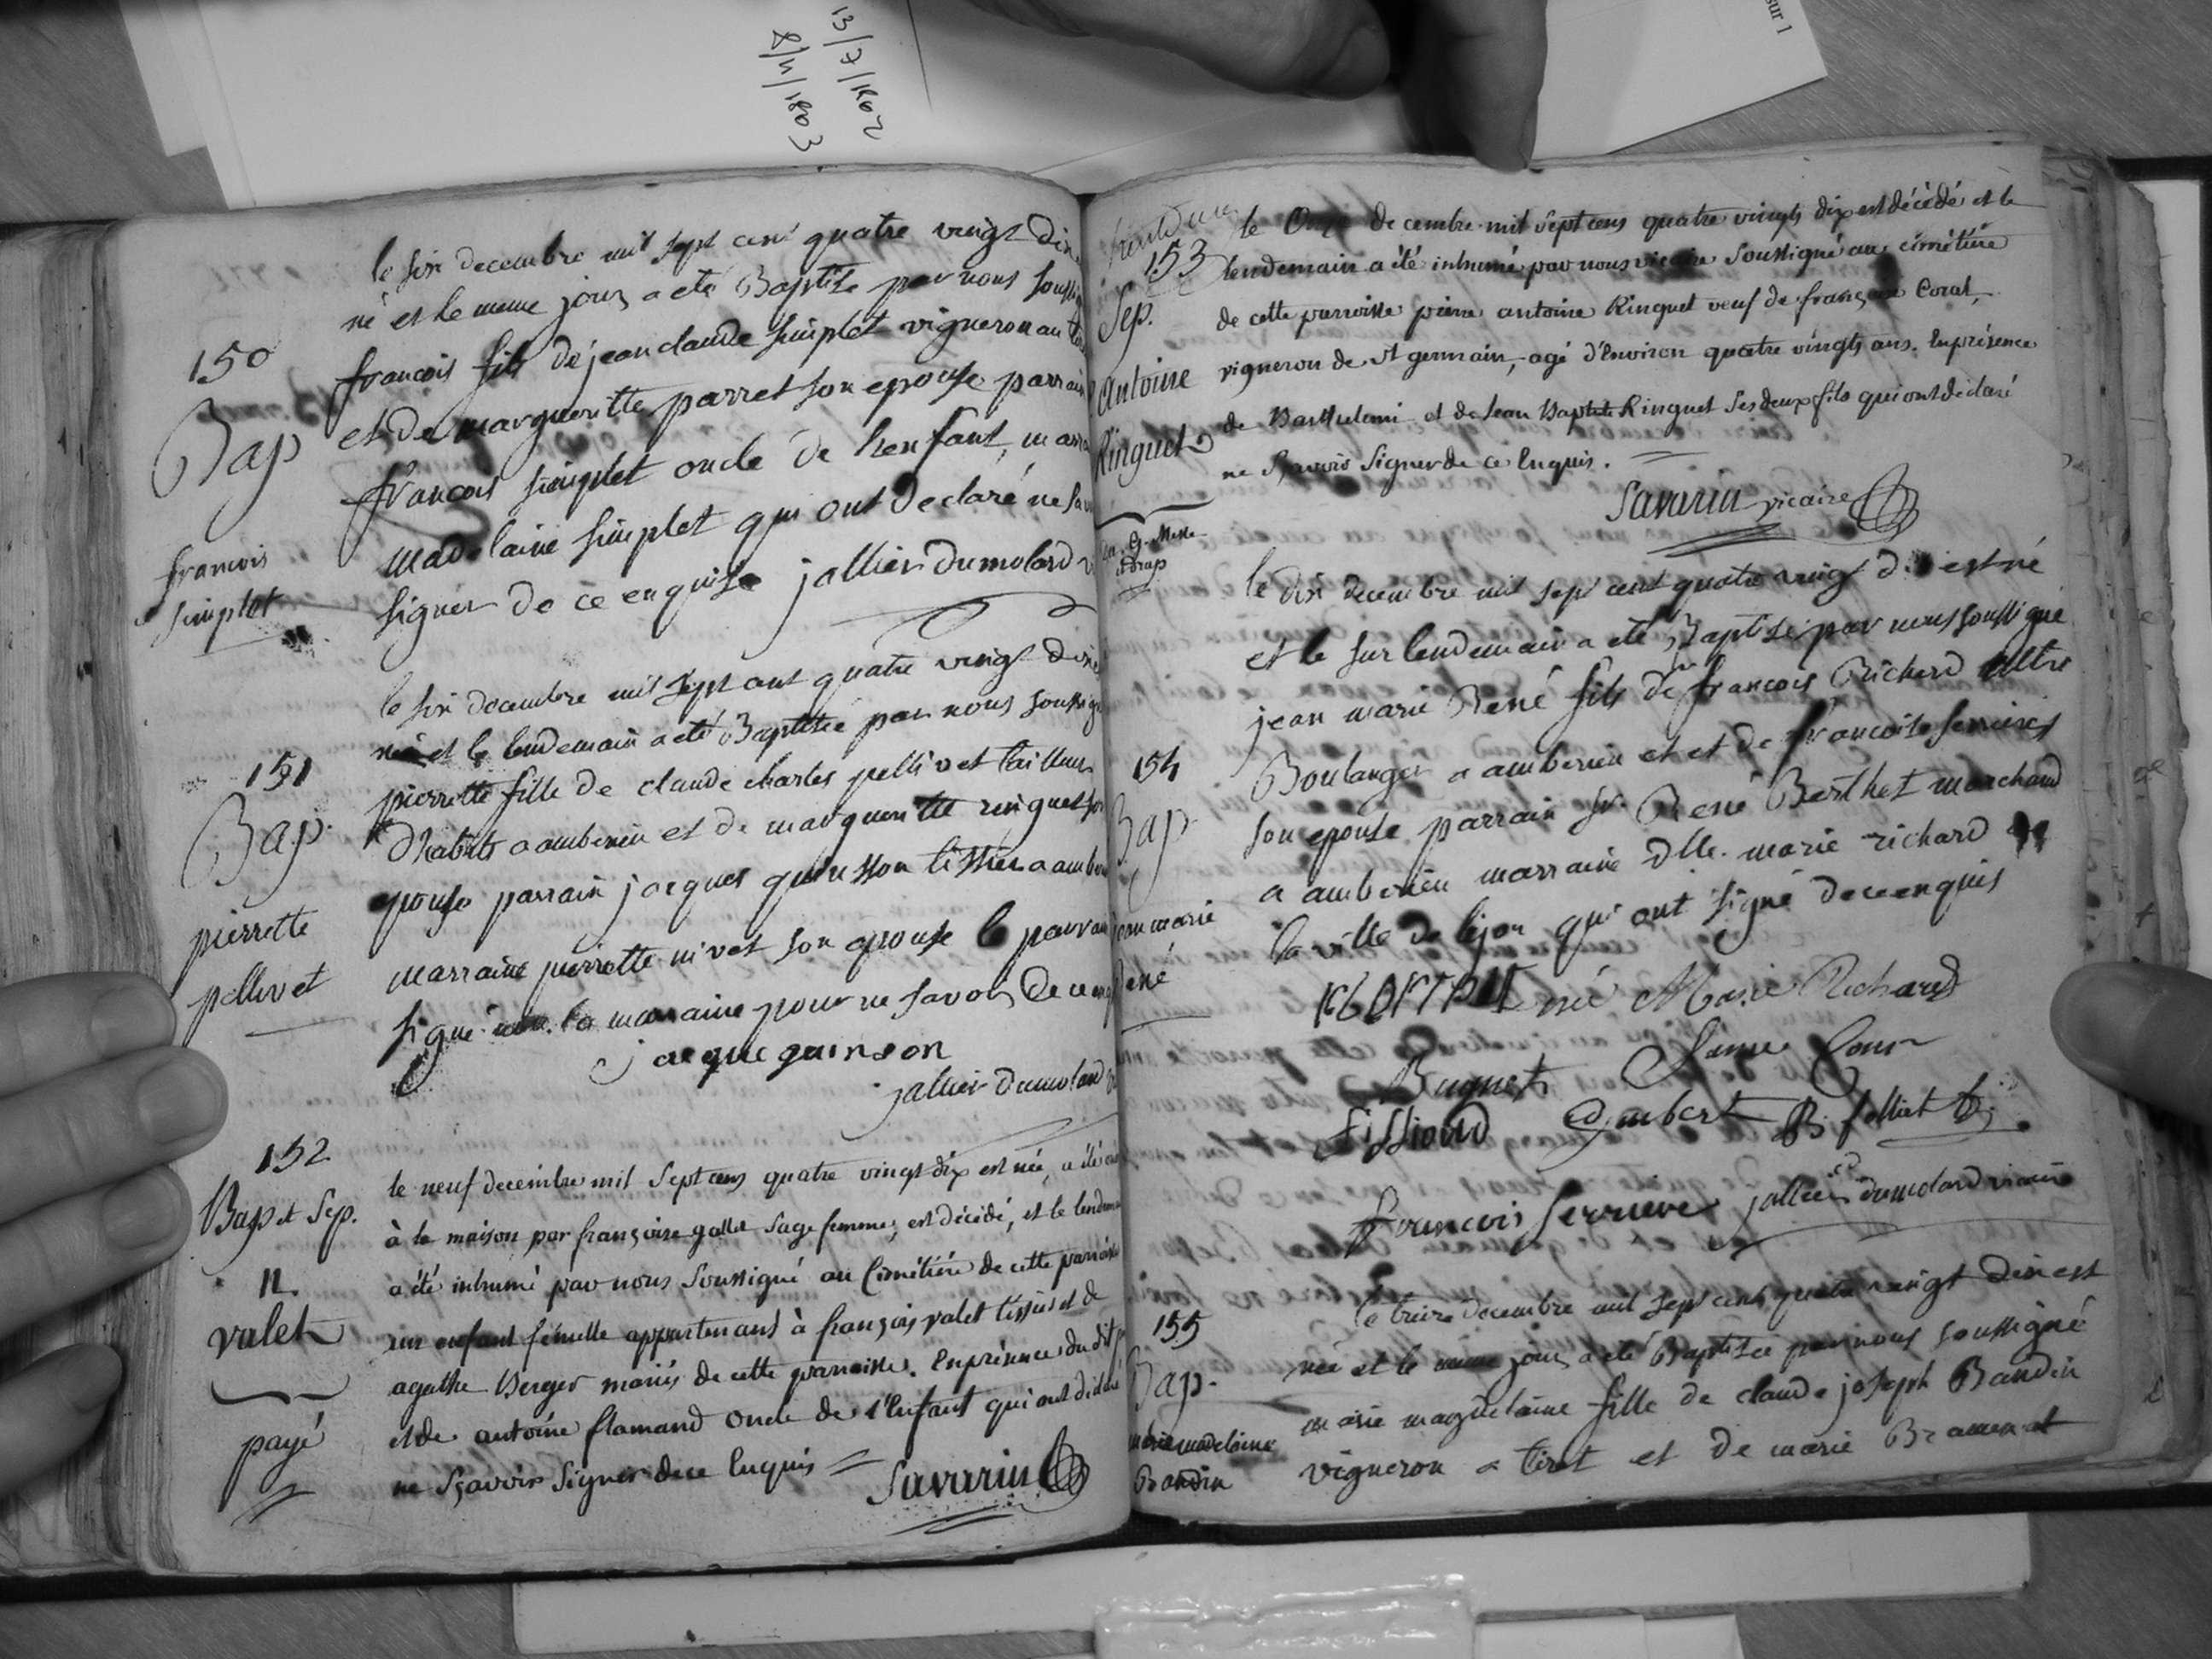 13/7/1802
8/11/1803
sur 1
150
Bap
francois
simplet
le six decembre mil sept cent quatre vingt dix
né et le meme jour a eté Baptisé par nous
francois fils de jean claude simplet vigneron au
et de margueritte parret son epouse parrain
francois simplet oncle de lenfant,
madelaine simplet qui ont declaré ne
signer de ce enquise jallier dumolard
151
Bap.
pierrette
pellivet
le six decembre mil sept cent quatre vingt
née et le lendemain a eté Baptisée par nous
pierrette fille de claude charles pellivet tailleur
d'habits a amberieu et de margueritte ringuet
epouse parrain jacques quinsson tissier a
marraine pierrette nivet son epouse le
signé non la marraine pour ne savoir de ce
jacque quinson
jallier dumolard
152
Bap et Sep.
N.
valet
payé
le neuf decembre mil sept cens quatre vingt dix est née, a été
à la maison par françoise gallet sage femme, est décédé, et le
a été inhumé par nous soussigné au Cimétière de cette
un enfant fémelle appartenant à françois valet tissier et de
agathe Berger mariés de cette parroisse. En présence du dit
et de antoine flamand oncle de l'enfant qui ont
ne sçavoir signer de ce Enquis
Savarin
153
Sep.
Antoine
Ringuet
le Onze decembre mil sept cens quatre vingts dix est décédé et le
lendemain a été inhumé par nous vicaire soussigné au cimétière
de cette parroisse pierre antoine Ringuet veuf de françoise Corat,
vigneron de st germain, agé d'Environ quatre vingts ans. En présence
de Barthelemi et de Jean Baptiste Ringuet ses deux fils qui ont déclaré
ne sçavoir signer de ce Enquis.
Savarin vicaire
154
Bap
jean marie
René
le dix decembre mil sept cent quatre vingt dix est né
et le sur lendemain a eté Baptisé par nous soussigné
jean marie René fils de sr francois Richard Mtre
Boulanger a amberieu et et de francoise serrieres
son epouse parrain sr. René Berthet marchand
a amberieu marraine dlle. marie richard
la ville de lyon qui ont signé de ce enquis
René Marie Richard
Buynet
Tissiaud Gumbert B. folliet
francois serriere jallier dumolard vicaire
155
Bap.
marie madelaine
Bandin
le treize decembre mil sept cent quatre vingt dix est
née et le même jour a eté Baptisée par nous soussigné
marie magdelaine fille de claude joseph Bandin
vigneron a tiret et de marie Bramerel